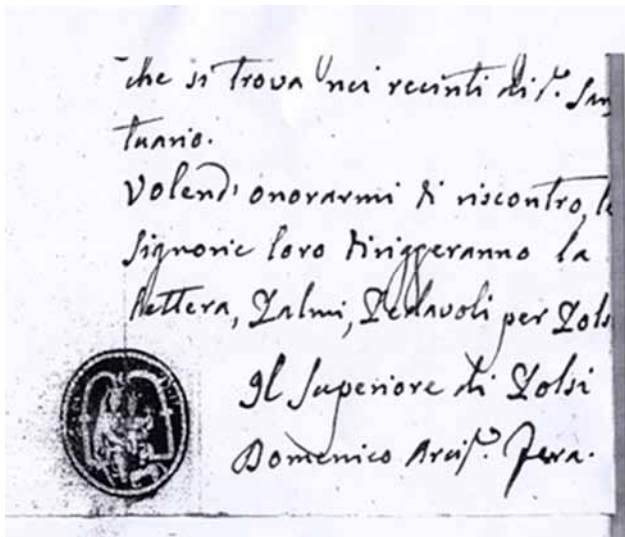 che si trova nei recinti di s.º San
tuario.
Volend' onorarmi di riscontro, le
Signorie loro diriggeranno la
Lettera, Palmi, Pedavoli per Pols
Il Superiore di Polsi
Domenico Arcip.e Fera.